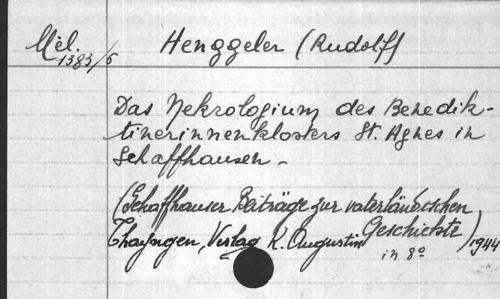 Mél. Henggeler (Rudolf)
1383/6
Das Nekrologium des Benedik-
tinerinnenklosters St. Agnes in
Schaffhausen -
(Schaffhauser Beiträge zur vaterländischen
Geschichte)
Thayngen, Verlag K. Augustin 1944
in 8º